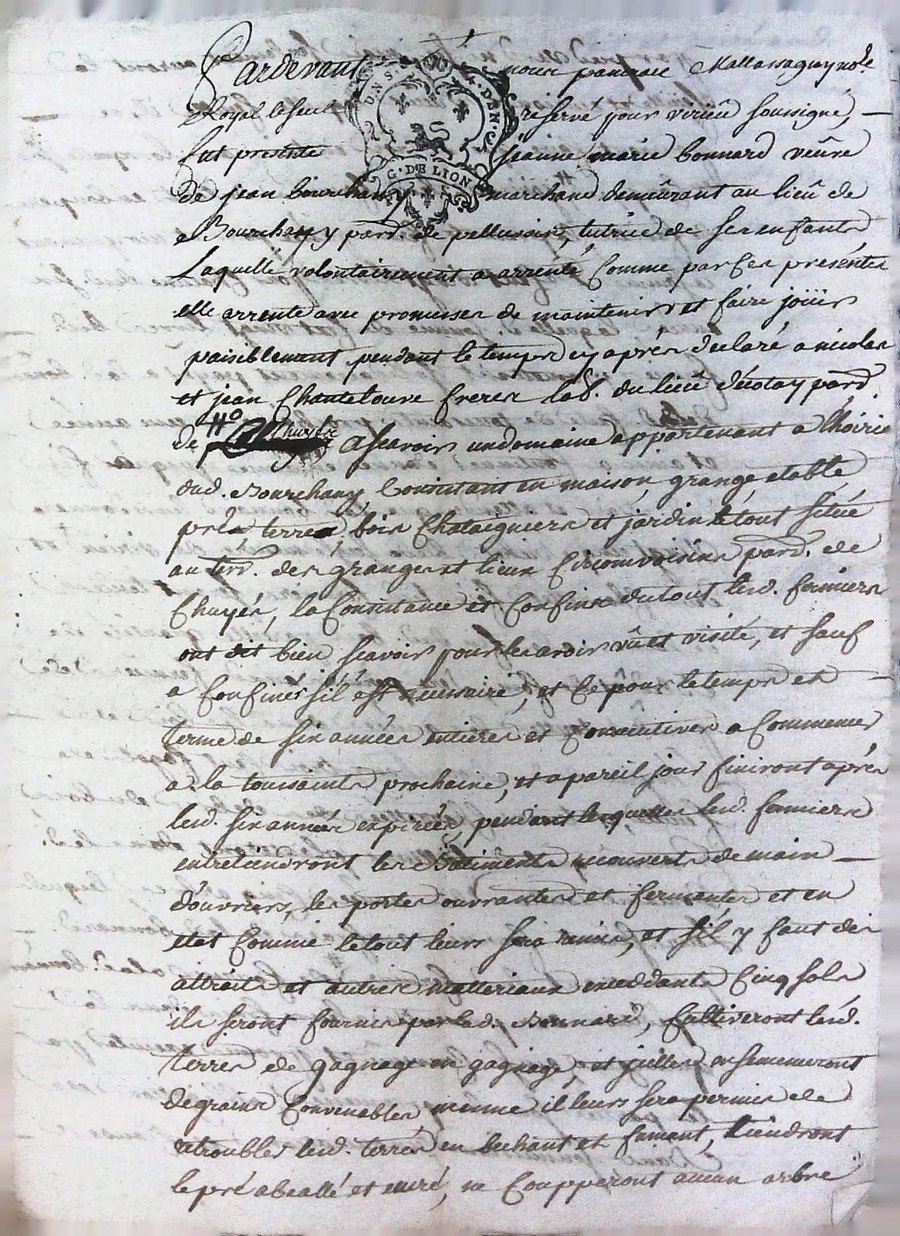 Pardevant nous pancrace Mallassagny no.re
Royal le seul reservé pour virieu soussigné,
fut presente jeanne marie bonnard veûve
De jean bourchany marchand demûrant au lieû de
Bourchany par.d de pellussin, tutrice de ses enfants
Laquelle volontairement a arrenté Comme par Ces présentes
elle arrente avec promesses de maintenir et faire joüir
paisiblement pendant le temps cy après declaré a nicolas
et jean Chantelouve freres lab.rs du lieû d'écotay par.d
de Chuyer Ascavoir un domaine appartenant a l'hoirie
dud. Bourchany, Consistant en maison, grange etable
prés, terres, bois Chataigniers et jardin le tout situé
au terr.d des granges et lieux Circonvoisins par.d de
Chuyés, la Consistance et Confins du tout lesd. fermiers
ont dit bien scavoir pour les avoir vû et visité, et sauf
a Confiner s'il est necessaire, et Ce pour le temps et
terme de six années entieres et Consecutives a Commencer
a la toussaints prochaine, et a pareil jour finiront après
lesd. six années expirées, pendant lesquelles lesd. fermiers
entretiendront les batiments recouverts de main
d'ouvriers, les portes ouvrantes et fermantes et en
etat Comme le tout leurs sera remis, et s'il y faut des
attraits et autres matteriaux excedants Cinq sols
ils seront fournis par lad. Bonnard, Cultiveront lesd.
terres de gagnage en gagnage et juilles ensemenceront
de grains Convenables, menme il leurs sera permis de
retroubles lesd. terres en bechant et fumant, tiendront
le pré abeallé et curé, ne Coupperont aucun arbre
G. DE LION